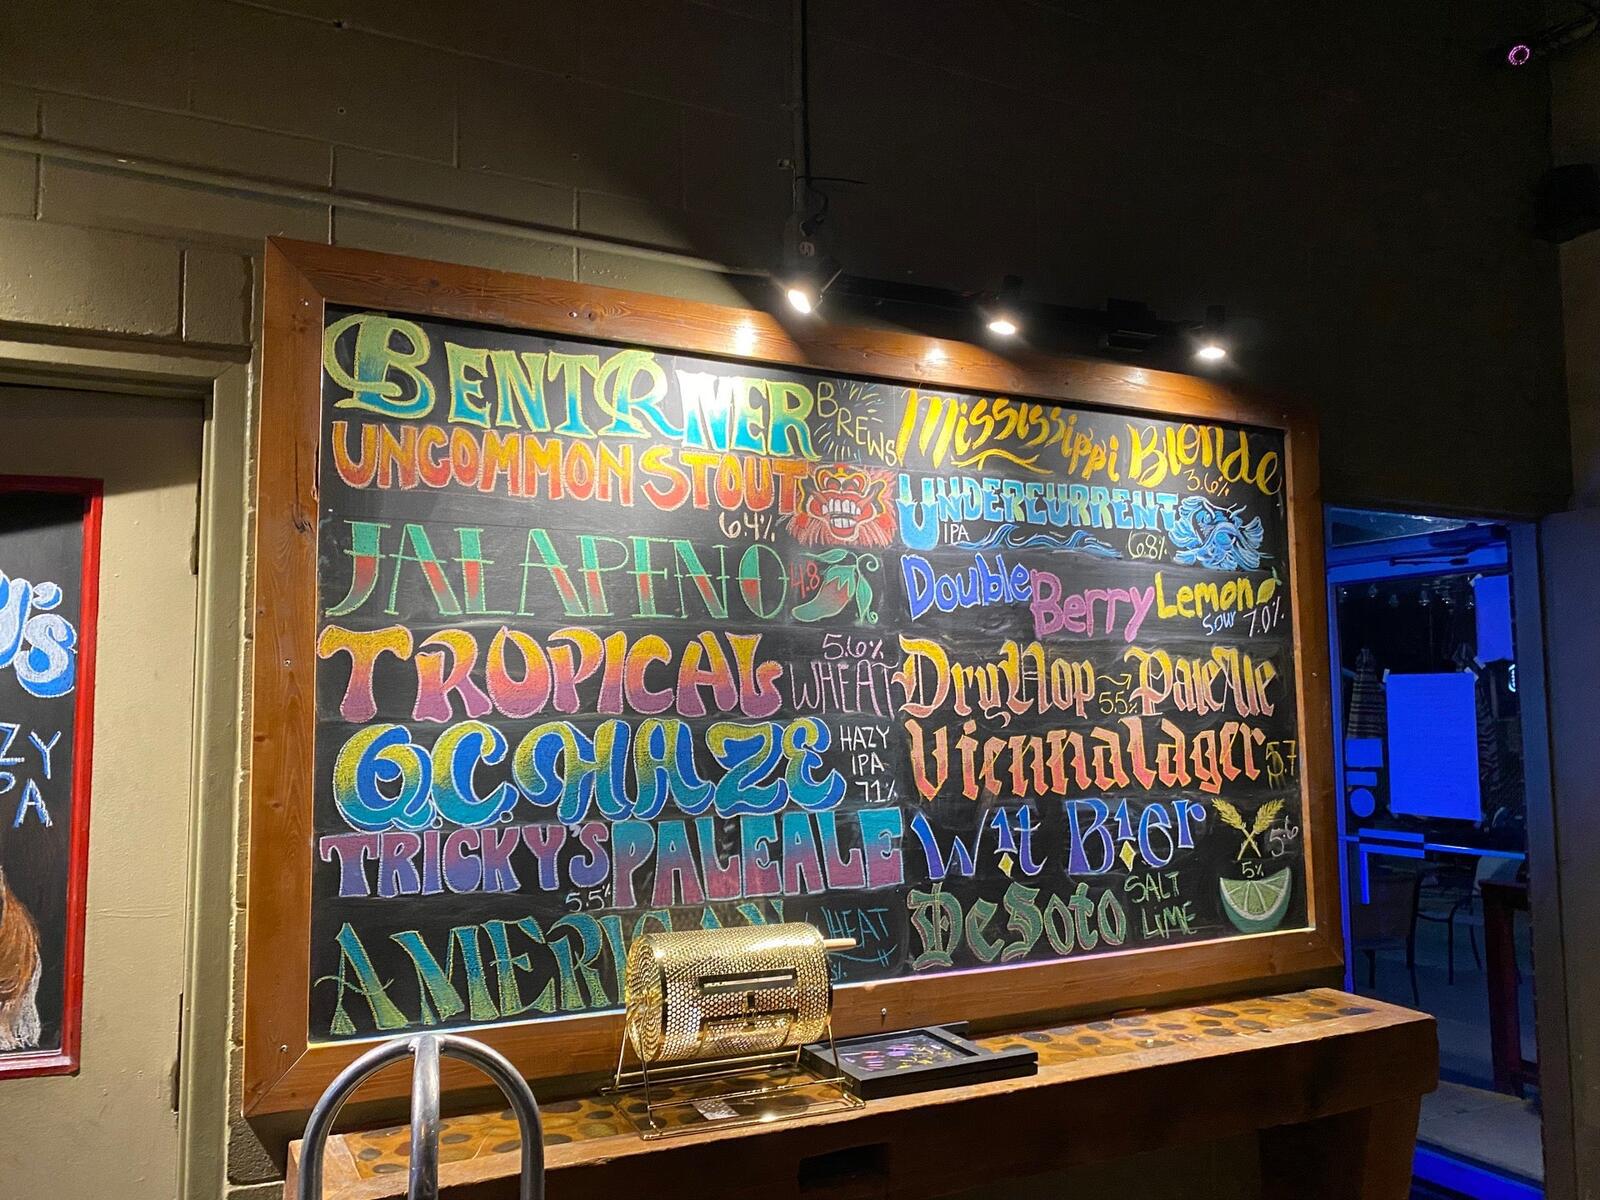 BENT RIVER BREWS
UNCOMMON STOUT
6.4%
JALAPENO 4.8
TROPICAL WHEAT
5.6%
Q.C. HAZE
HAZY
IPA
7.1%
TRICKY'S PALE ALE
5.5%
AMERICAN WHEAT
Mississippi Blonde
3.6%
UNDERCURRENT
IPA
6.8%
Double Berry Lemon
Sour 7.0%
Dry Hop Pale Ale
5.5%
Vienna Lager 5.7
Wit Bier 5.6
5%
DeSoto SALT
LIME
's
ZY
PA